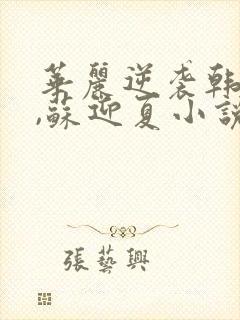 華麗逆袭韩
,蘇迎夏小說
張藝興